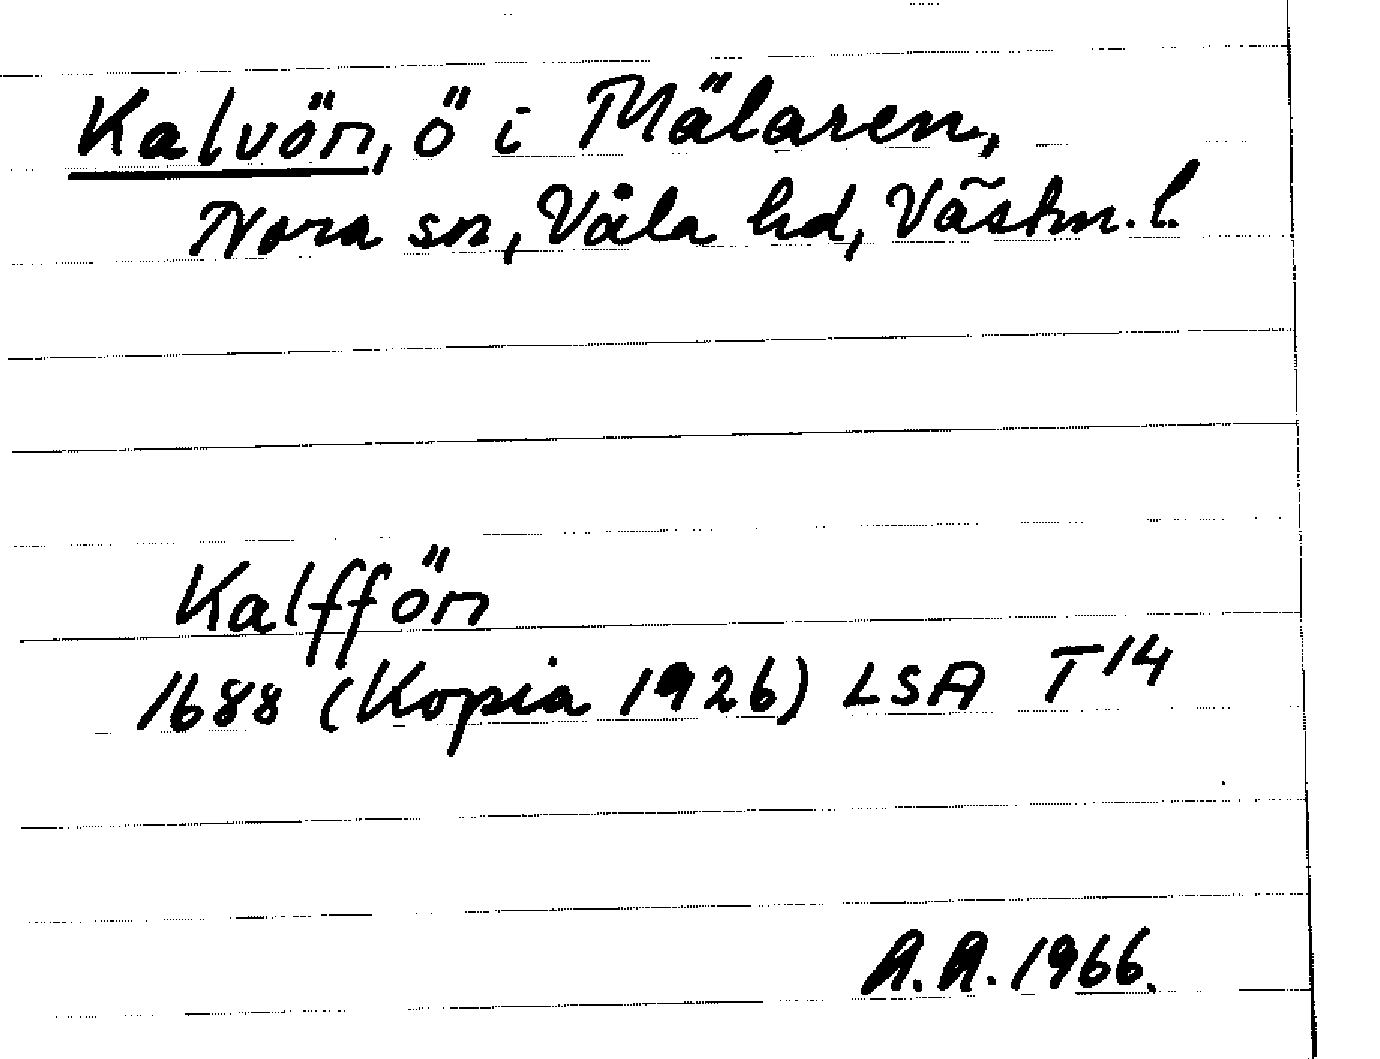 Kalvön, ö i Mälaren,
Nora sn, Våla hd, Västm. l.
Kalffön
1688 (Kopia 1926) LSA T 14
A.A. 1966.